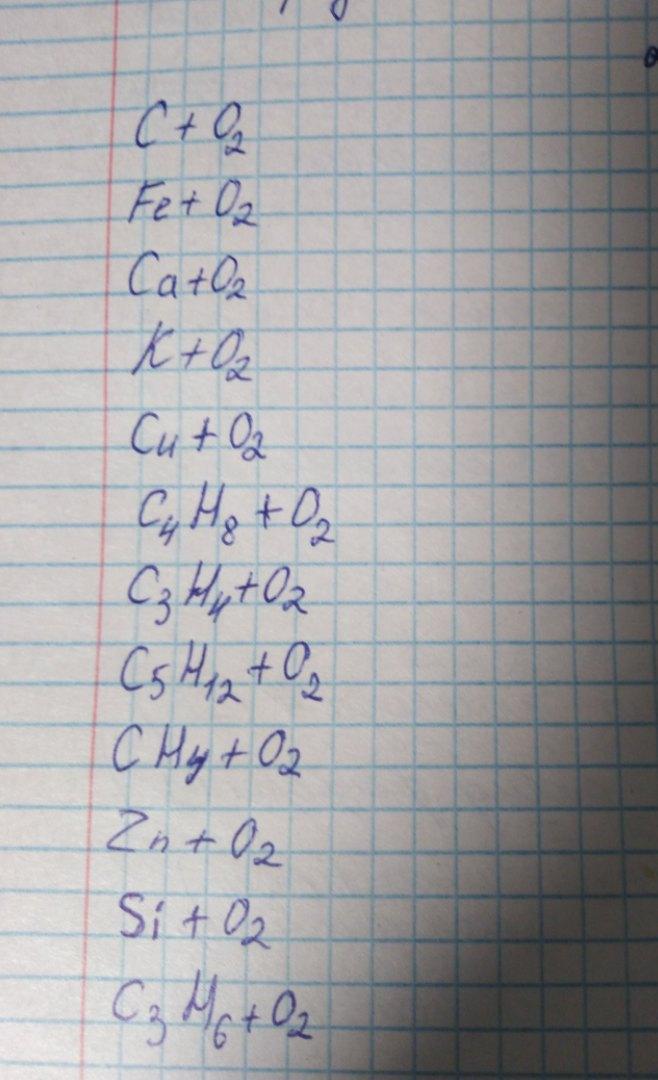 C + O₂
Fe + O₂
Ca + O₂
K + O₂
Cu + O₂
C₄H₈ + O₂
C₃H₄ + O₂
C₅H₁₂ + O₂
CH₄ + O₂
Zn + O₂
Si + O₂
C₃H₆ + O₂